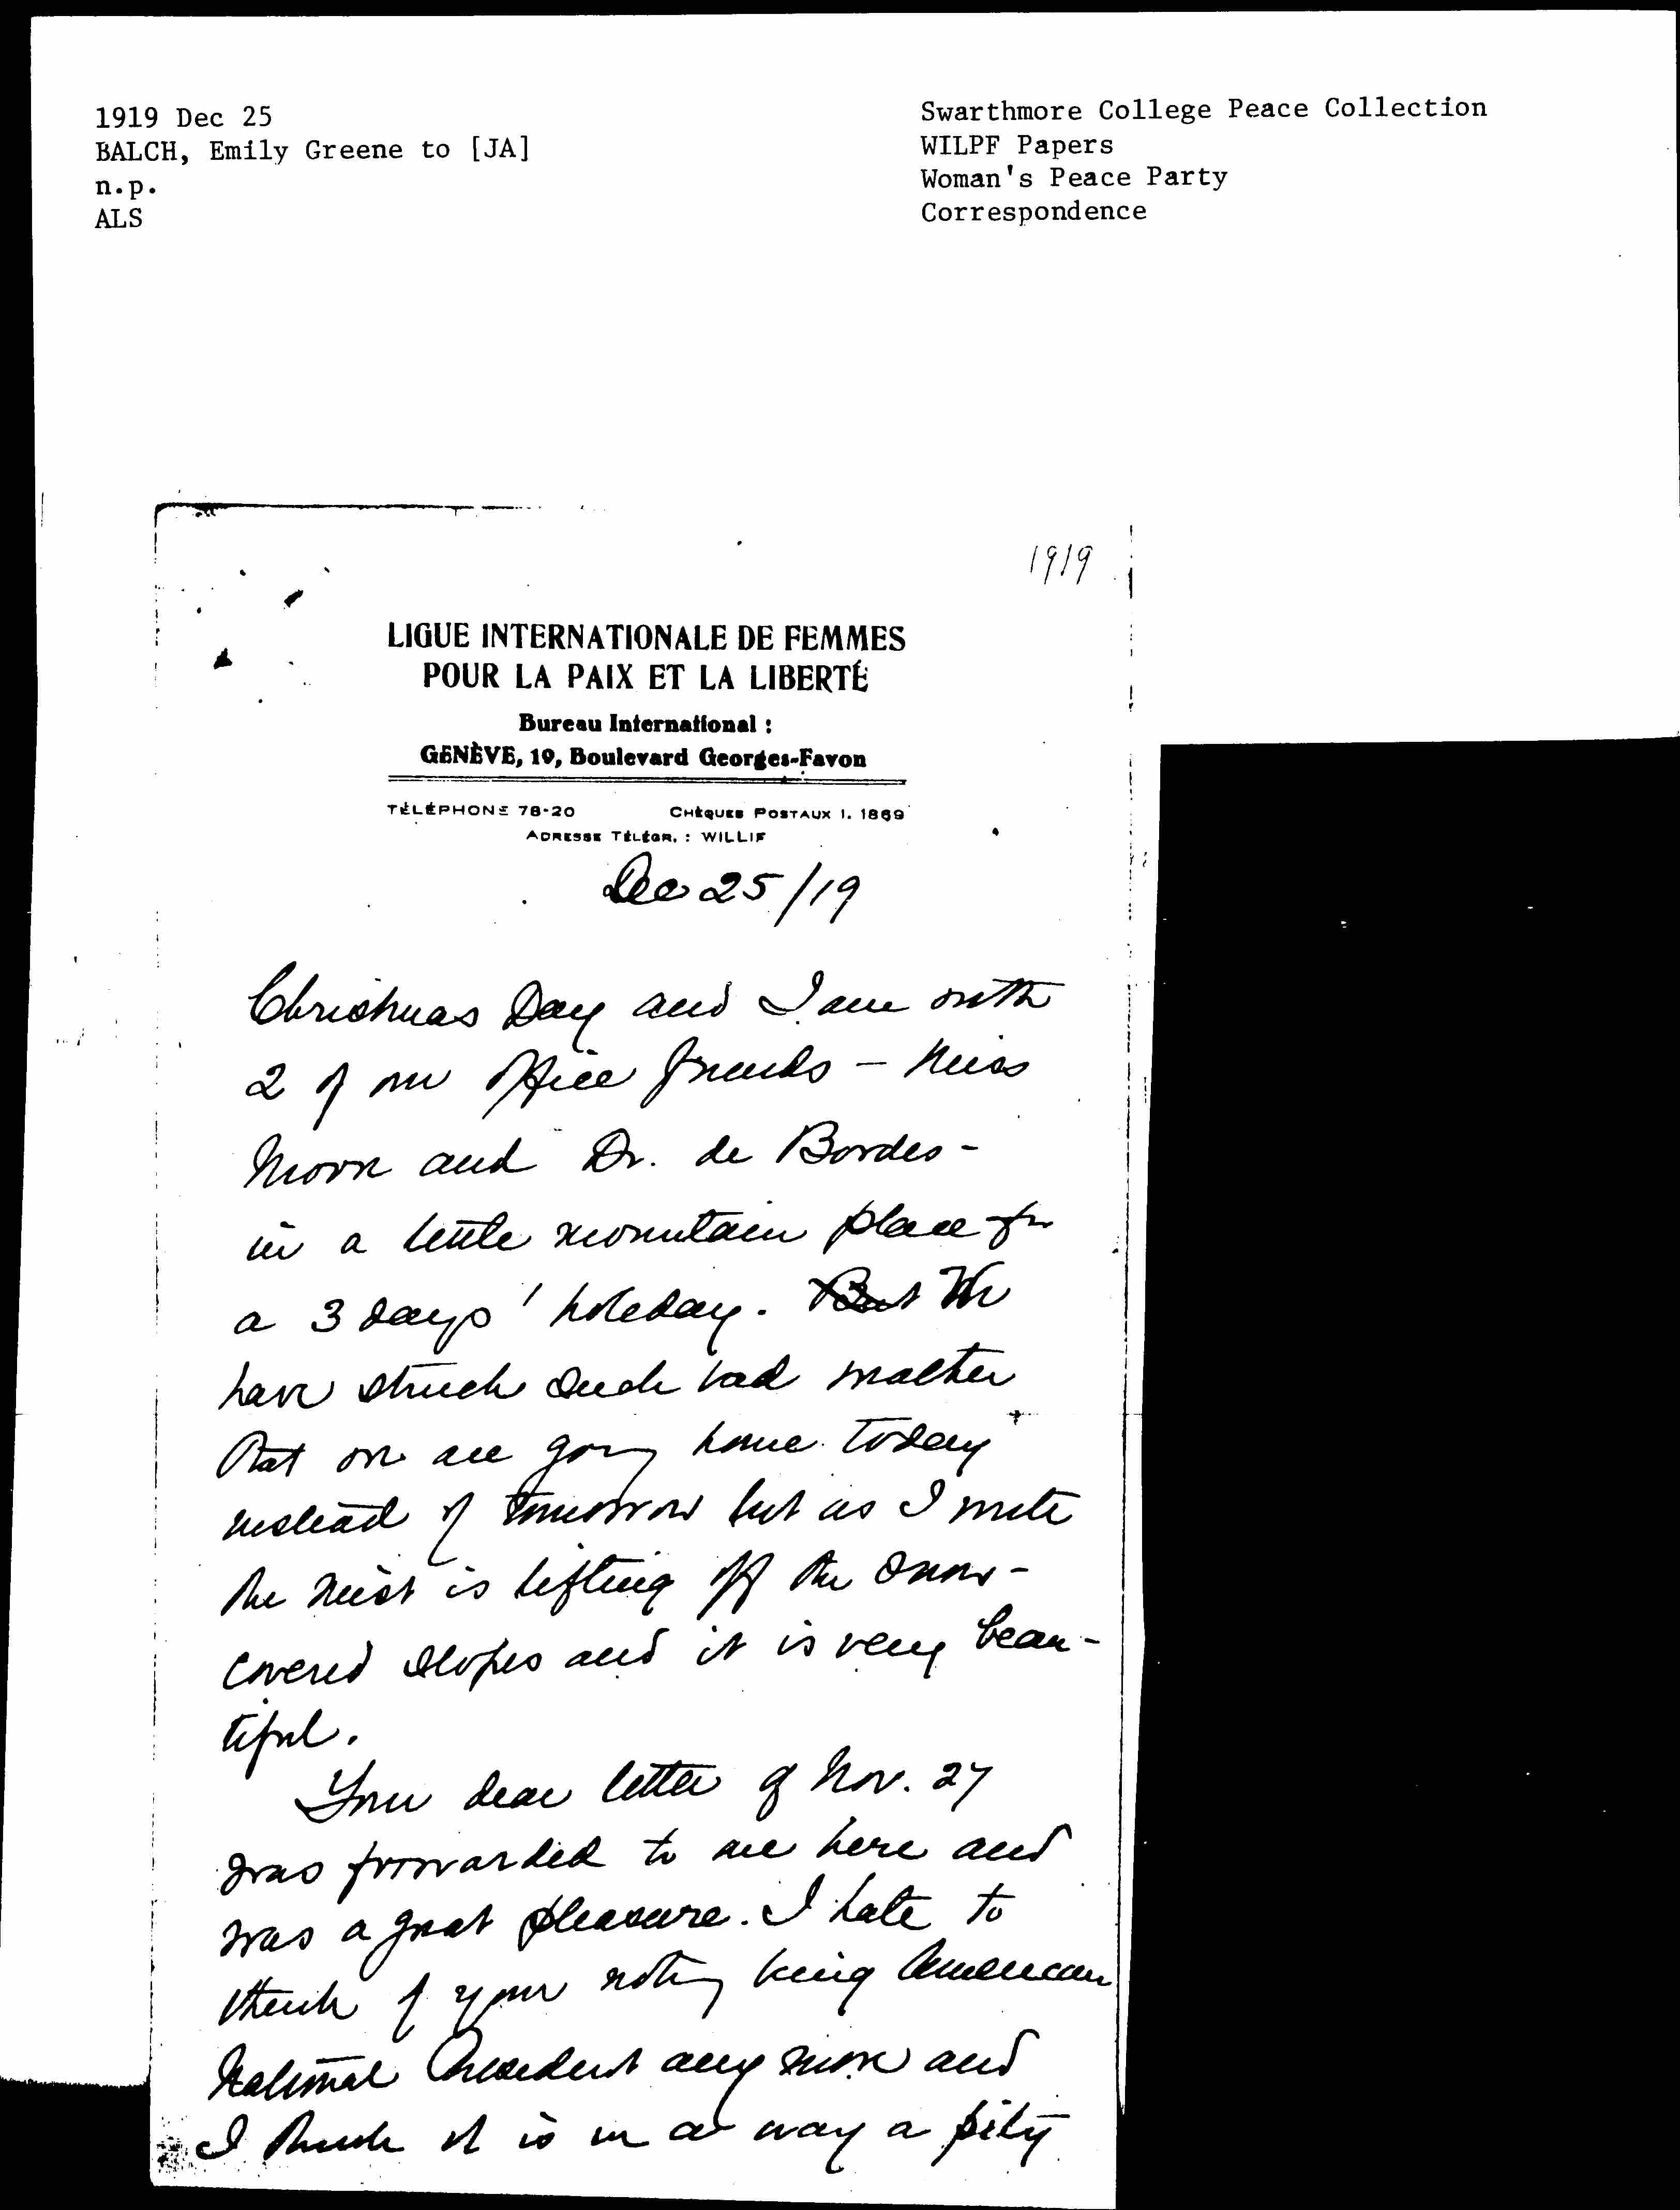 1919 Dec 25
BALCH, Emily Greene to [JA]
n.p.
ALS
Swarthmore College Peace Collection
WILPF Papers
Woman's Peace Party
Correspondence
1919
LIGUE INTERNATIONALE DE FEMMES
POUR LA PAIX ET LA LIBERTÉ
Bureau International :
GENÈVE, 19, Boulevard Georges-Favon
TÉLÉPHONE 78-20 CHÈQUES POSTAUX I. 1869
ADRESSE TÉLÉGR. : WILLIF
Dec 25/19
Christmas Day and I am with
2 of our office friends – Miss
Moon and Dr. de Bordes -
in a little mountain place for
a 3 days' holiday. But We
have struck such bad weather
that we are going home today
instead of tomorrow but as I write
the mist is lifting off the snow-
covered slopes and it is very beau-
tiful.
Your dear letter of Nov. 27
was forwarded to me here and
was a great pleasure. I hate to
think of your not being American
National President any more and
I think it is in a way a pity